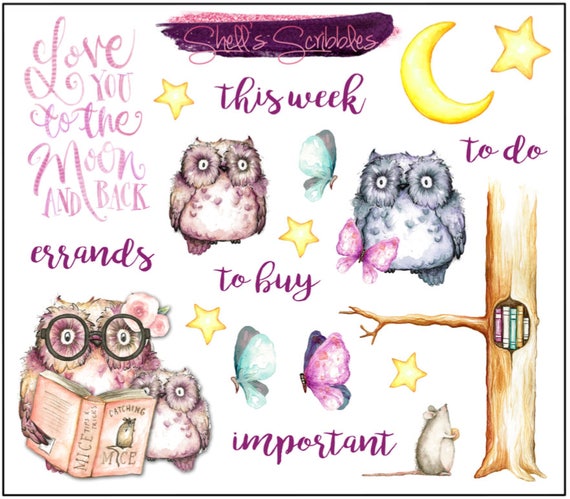 Shell's Scribbles
Love
YOU
to the
Moon
AND BACK
this week
to do
errands
to buy
MICE
TIPS &
TRICKS
CATCHING
MICE
important